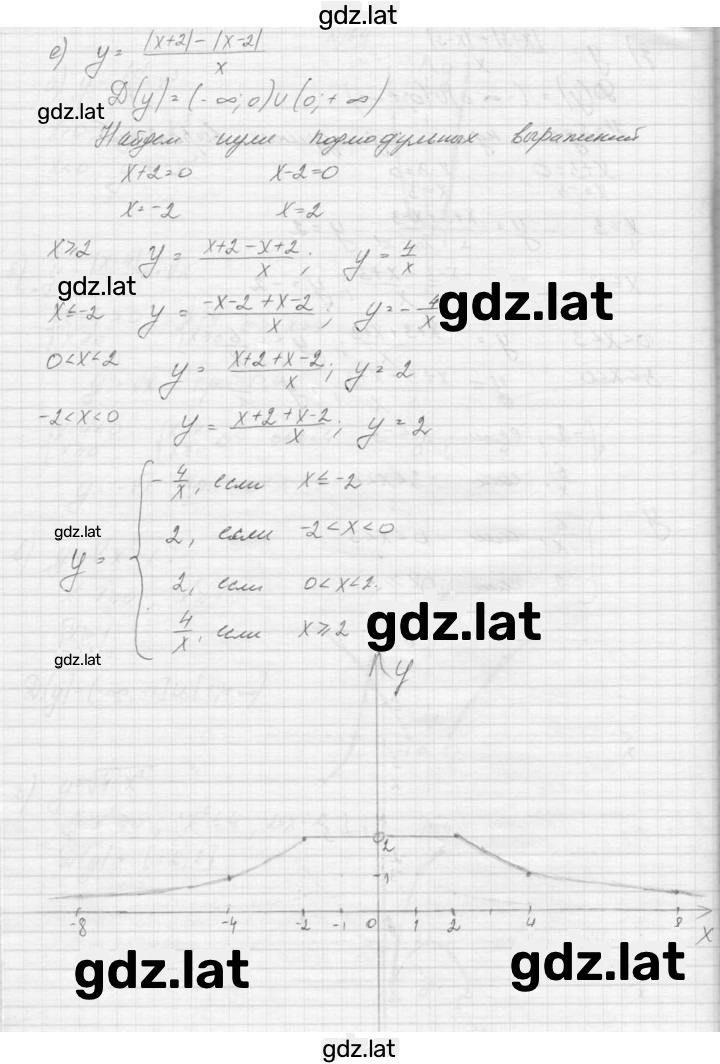 gdz.lat
е) y = |x+2| - |x-2| / x
gdz.lat
D(y) = (-∞; 0) ∪ (0; +∞)
Найдем нули подмодульных выражений
x+2=0 x-2=0
x=-2 x=2
x≥2 y = x+2-x+2 / x ; y = 4/x
gdz.lat
x≤-2 y = -x-2+x-2 / x ; y = -4/x
gdz.lat
0<x<2 y = x+2+x-2 / x ; y = 2
-2<x<0 y = x+2+x-2 / x ; y = 2
-4/x, если x≤-2
gdz.lat
2, если -2<x<0
y =
2, если 0<x<2
4/x, если x≥2
gdz.lat
gdz.lat
y
2
1
-8 -4 -2 -1 0 1 2 4 8
x
gdz.lat
gdz.lat
gdz.lat